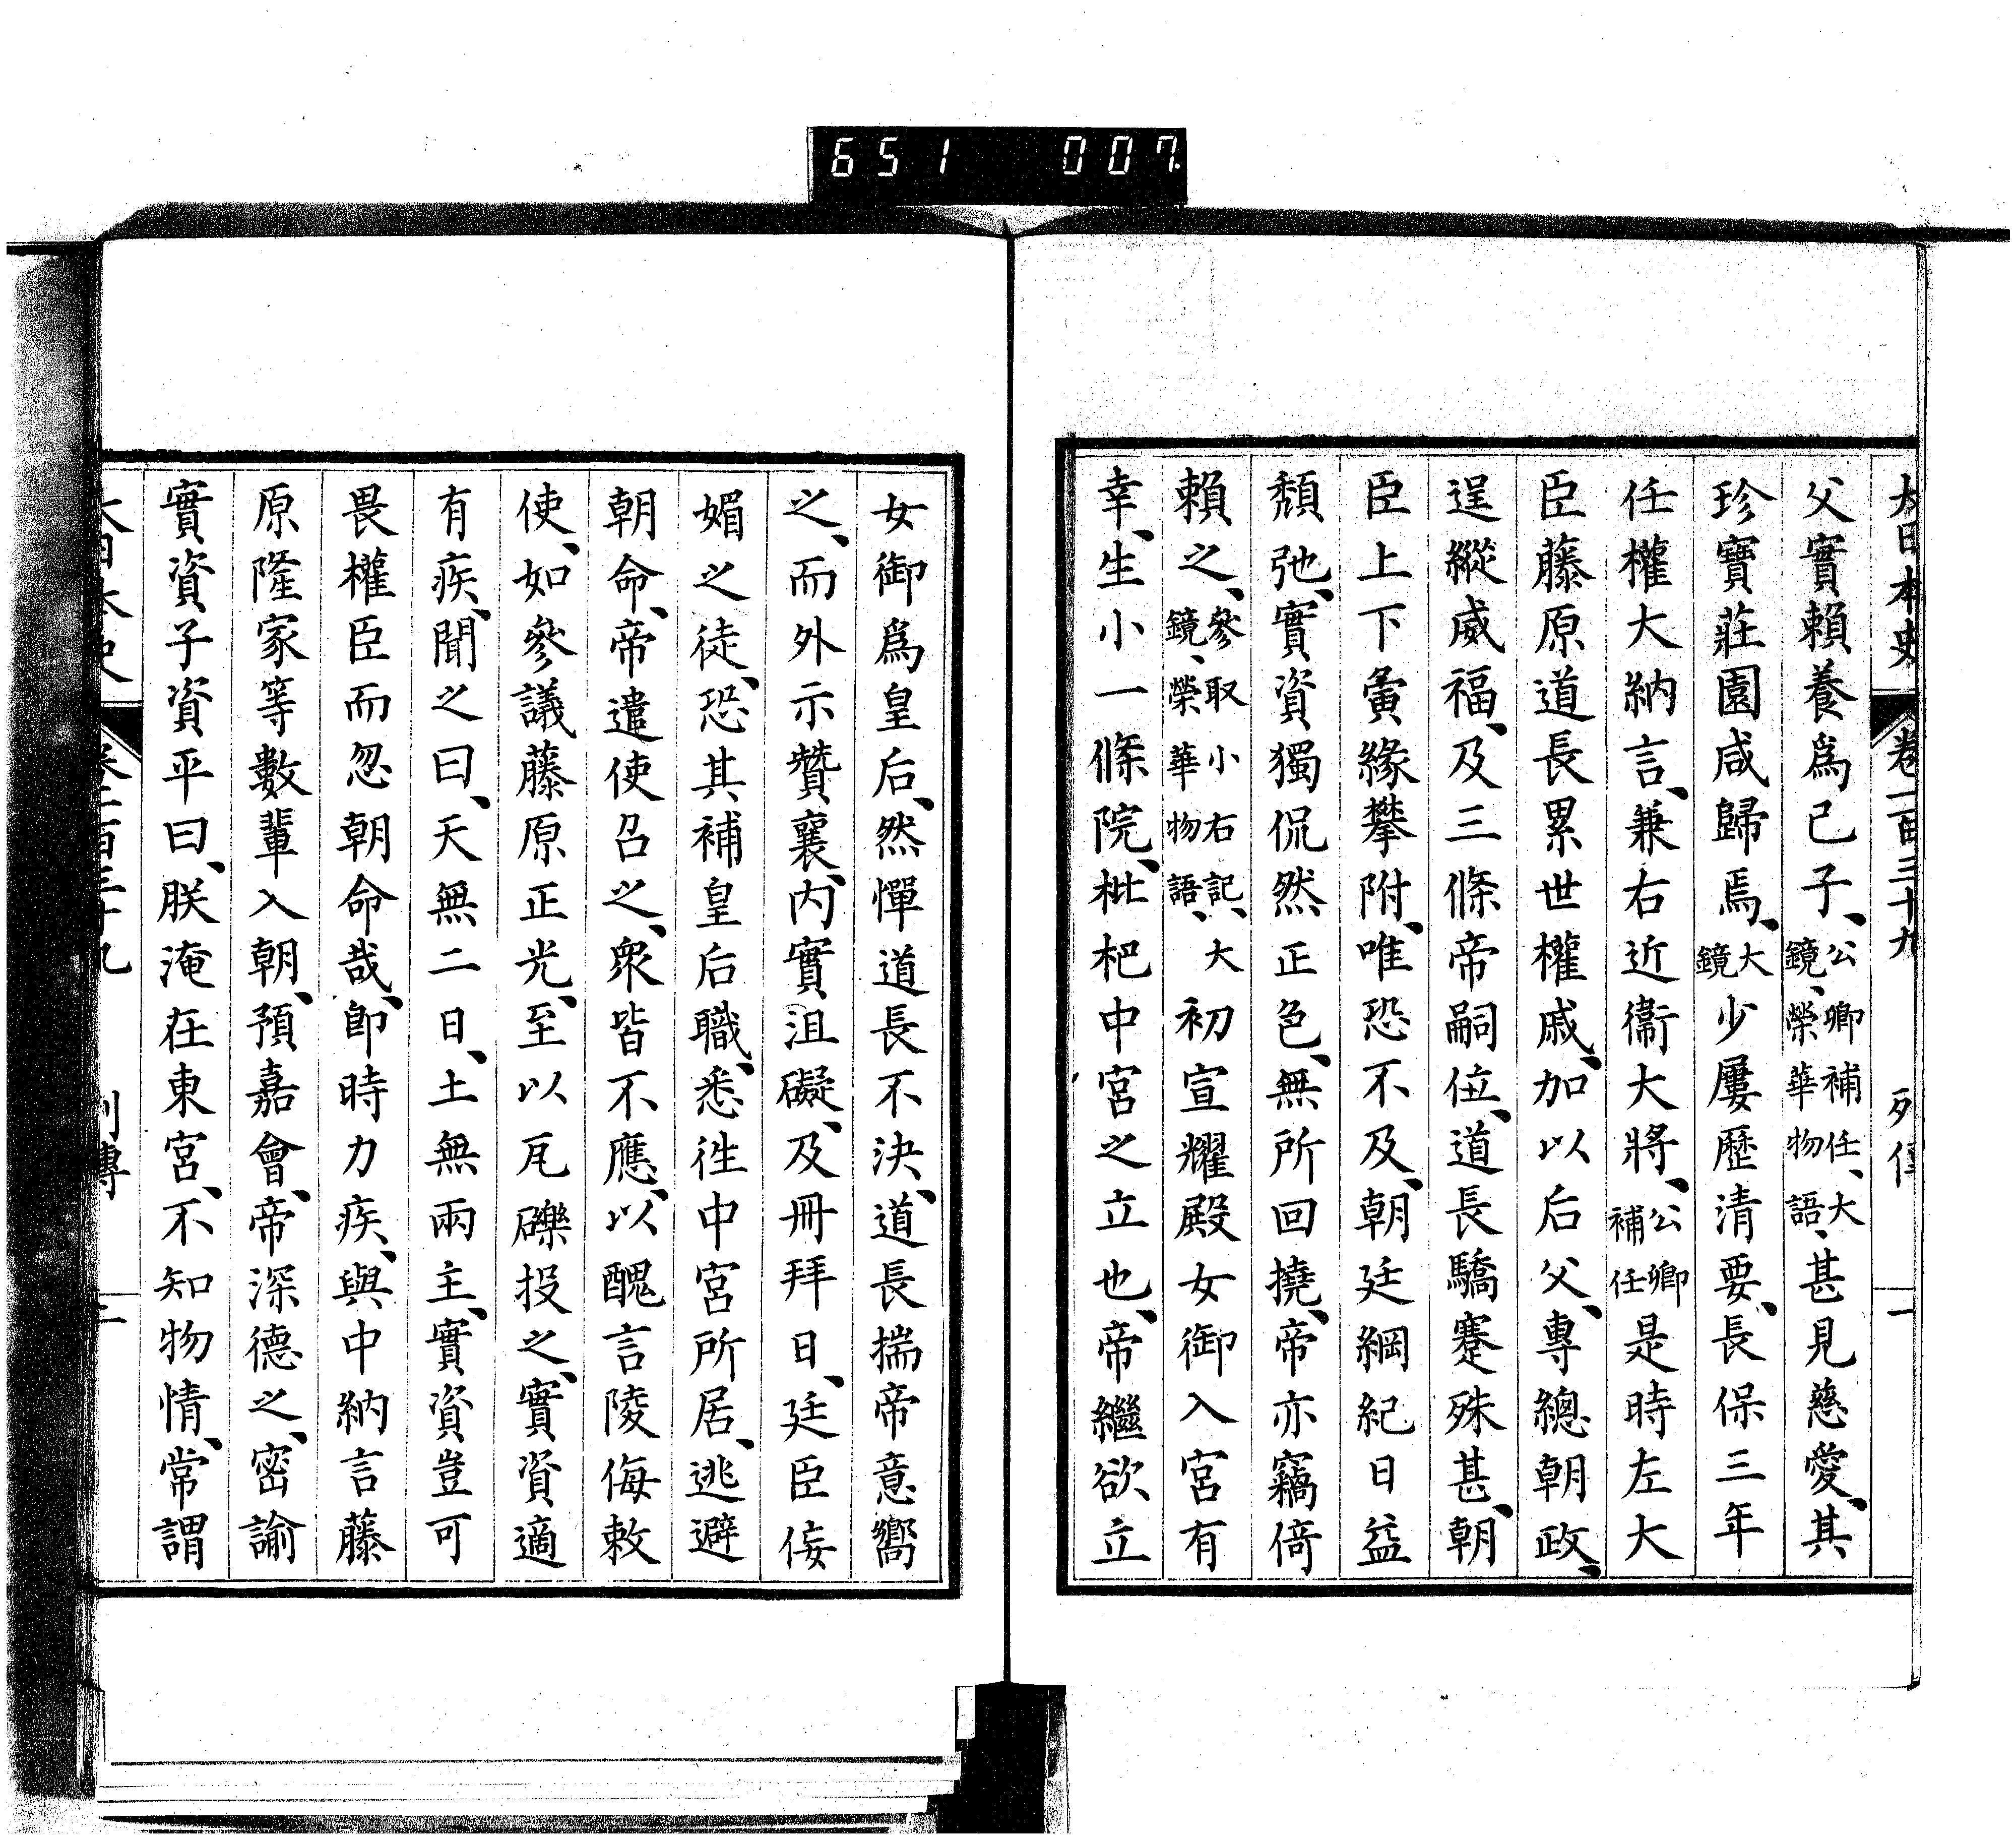 651 007
大日本史 卷一百三十九 列傳 一
父實賴養爲己子、公卿補任、大鏡、榮華物語、甚見慈愛、其
珍寶莊園咸歸焉、大鏡少屢歷清要、長保三年
任權大納言、兼右近衞大將、公卿補任是時左大
臣藤原道長累世權戚、加以后父、專總朝政、
逞縱威福、及三條帝嗣位、道長驕蹇殊甚、朝
臣上下夤緣攀附、唯恐不及、朝廷綱紀日益
頽弛、實資獨侃然正色、無所回撓、帝亦竊倚
賴之、參取小右記、大鏡、榮華物語、初宣耀殿女御入宮有
幸、生小一條院、枇杷中宮之立也、帝繼欲立
女御爲皇后、然憚道長不決、道長揣帝意嚮
之、而外示贊襄、内實沮礙、及冊拜日、廷臣佞
媚之徒、恐其補皇后職、悉徃中宮所居、逃避
朝命、帝遣使召之、衆皆不應、以醜言陵侮敕
使、如參議藤原正光、至以瓦礫投之、實資適
有疾、聞之曰、天無二日、土無兩主、實資豈可
畏權臣而忽朝命哉、卽時力疾、與中納言藤
原隆家等數輩入朝、預嘉會、帝深德之、密諭
實資子資平曰、朕淹在東宮、不知物情、常謂
大日本史 卷一百三十九 列傳 二